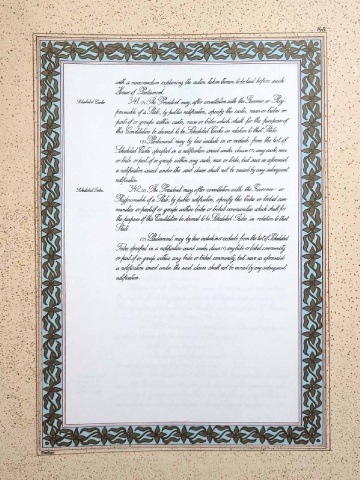 168
with a memorandum explaining the action taken thereon to be laid before each
House of Parliament.
Scheduled Castes
341. (1) The President may, after consultation with the Governor or Raj-
pramukh of a State, by public notification, specify the castes, races or tribes or
parts of or groups within castes, races or tribes which shall for the purposes of
this Constitution be deemed to be Scheduled Castes in relation to that State.
(2) Parliament may by law include in or exclude from the list of
Scheduled Castes specified in a notification issued under clause (1) any caste, race
or tribe or part of or group within any caste, race or tribe, but save as aforesaid
a notification issued under the said clause shall not be varied by any subsequent
notification.
Scheduled Tribes
342. (1) The President may, after consultation with the Governor or
Rajpramukh of a State, by public notification, specify the tribes or tribal com-
munities or parts of or groups within tribes or tribal communities which shall for
the purposes of this Constitution be deemed to be Scheduled Tribes in relation to that
State.
(2) Parliament may by law include in or exclude from the list of Scheduled
Tribes specified in a notification issued under clause (1) any tribe or tribal community
or part of or group within any tribe or tribal community, but save as aforesaid
a notification issued under the said clause shall not be varied by any subsequent
notification.